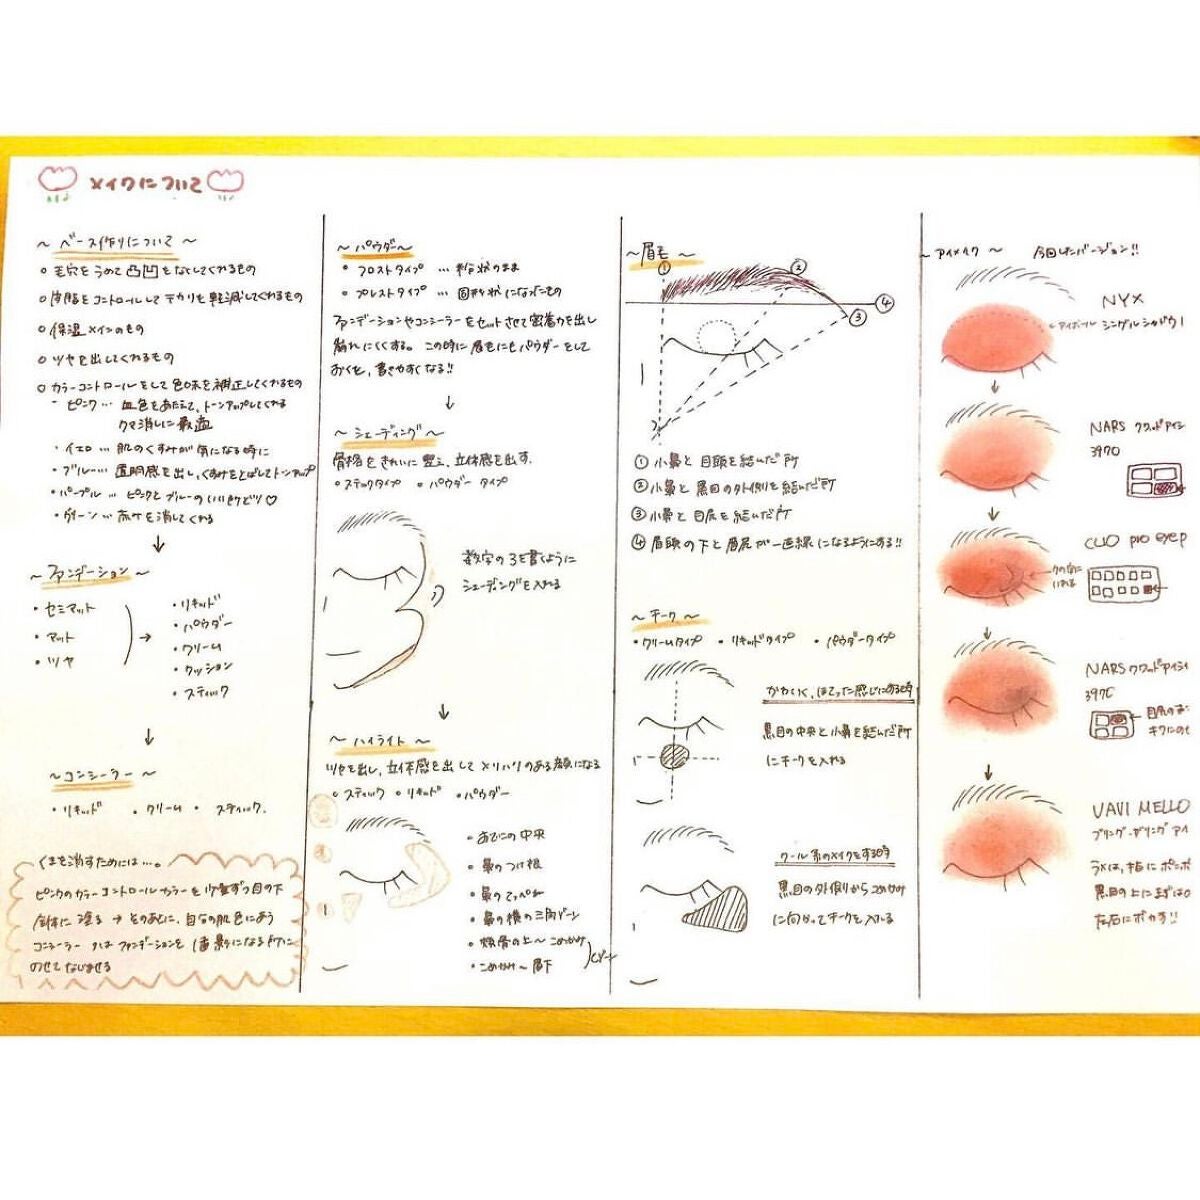 メイクについて
～ ベース作りについて ～
○ 毛穴をうめて凸凹をなくしてくれるもの
○ 皮脂をコントロールしてテカリを軽減してくれるもの
○ 保湿メインのもの
○ ツヤを出してくれるもの
○ カラーコントロールをして色味を補正してくれるもの
・ピンク… 血色をあたえて、トーンアップしてくれる
クマ消しに最適
・イエロー… 肌のくすみが気になる時に
・ブルー… 透明感を出し、くすみをとばしてトーンアップ
・パープル… ピンクとブルーのいいとこどり♡
・グリーン… 赤みを消してくれる
↓
～ファンデーション～
・セミマット
・マット
・ツヤ
→
・リキッド
・パウダー
・クリーム
・クッション
・スティック
↓
～コンシーラー～
・リキッド ・クリーム ・スティック.
くまを消すためには…。
ピンクのカラーコントロールカラーを少量ずつ目の下
全体に塗る → そのあとに、自分の肌色にあう
コンシーラー ファンデーションを 1番影になる所に
のせてなじませる
～パウダー～
・フロストタイプ … 粉状のまま
・プレストタイプ … 固形状になったもの
ファンデーションやコンシーラーをセットさせて密着力を出し
崩れにくくする。この時に眉毛にもパウダーをして
おくと、書きやすくなる!!
↓
～シェーディング～
骨格をきれいに整え、立体感を出す.
・スティックタイプ ・パウダータイプ
数字の3を書くように
シェーディングを入れる
↓
～ハイライト～
ツヤを出し、立体感を出してメリハリのある顔になる
・スティック ・リキッド ・パウダー
・おでこの中央
・鼻のつけ根
・鼻のてっぺん
・鼻の横の三角ゾーン
・頬骨の上～こめかみ
・こめかみ～眉下
Cゾーン
～眉毛～
① ② ③ ④
① 小鼻と目頭を結んだ所
② 小鼻と黒目の外側を結んだ所
③ 小鼻と目尻を結んだ所
④ 眉頭の下と眉尻が一直線になるようにする!!
～チーク～
・クリームタイプ ・リキッドタイプ ・パウダータイプ
かわいく、ほてった感じにする時
黒目の中央と小鼻を結んだ所
にチークを入れる
クール系のメイクをする時
黒目の外側からこめかみ
に向かってチークを入れる
～アイメイク～ 今回したバージョン!!
NYX
アイホール
シングルシャドウ
↓
NARS クワッドアイシ
3970
↓
CLIO pro eye p
入れる
↓
NARSクワッドアイシ
397
目尻の
↓
UAVI MELLO
ブリング・ザリングアイ
ラメは、指にポンポ
黒目の上にまずは
左右にボカす!!